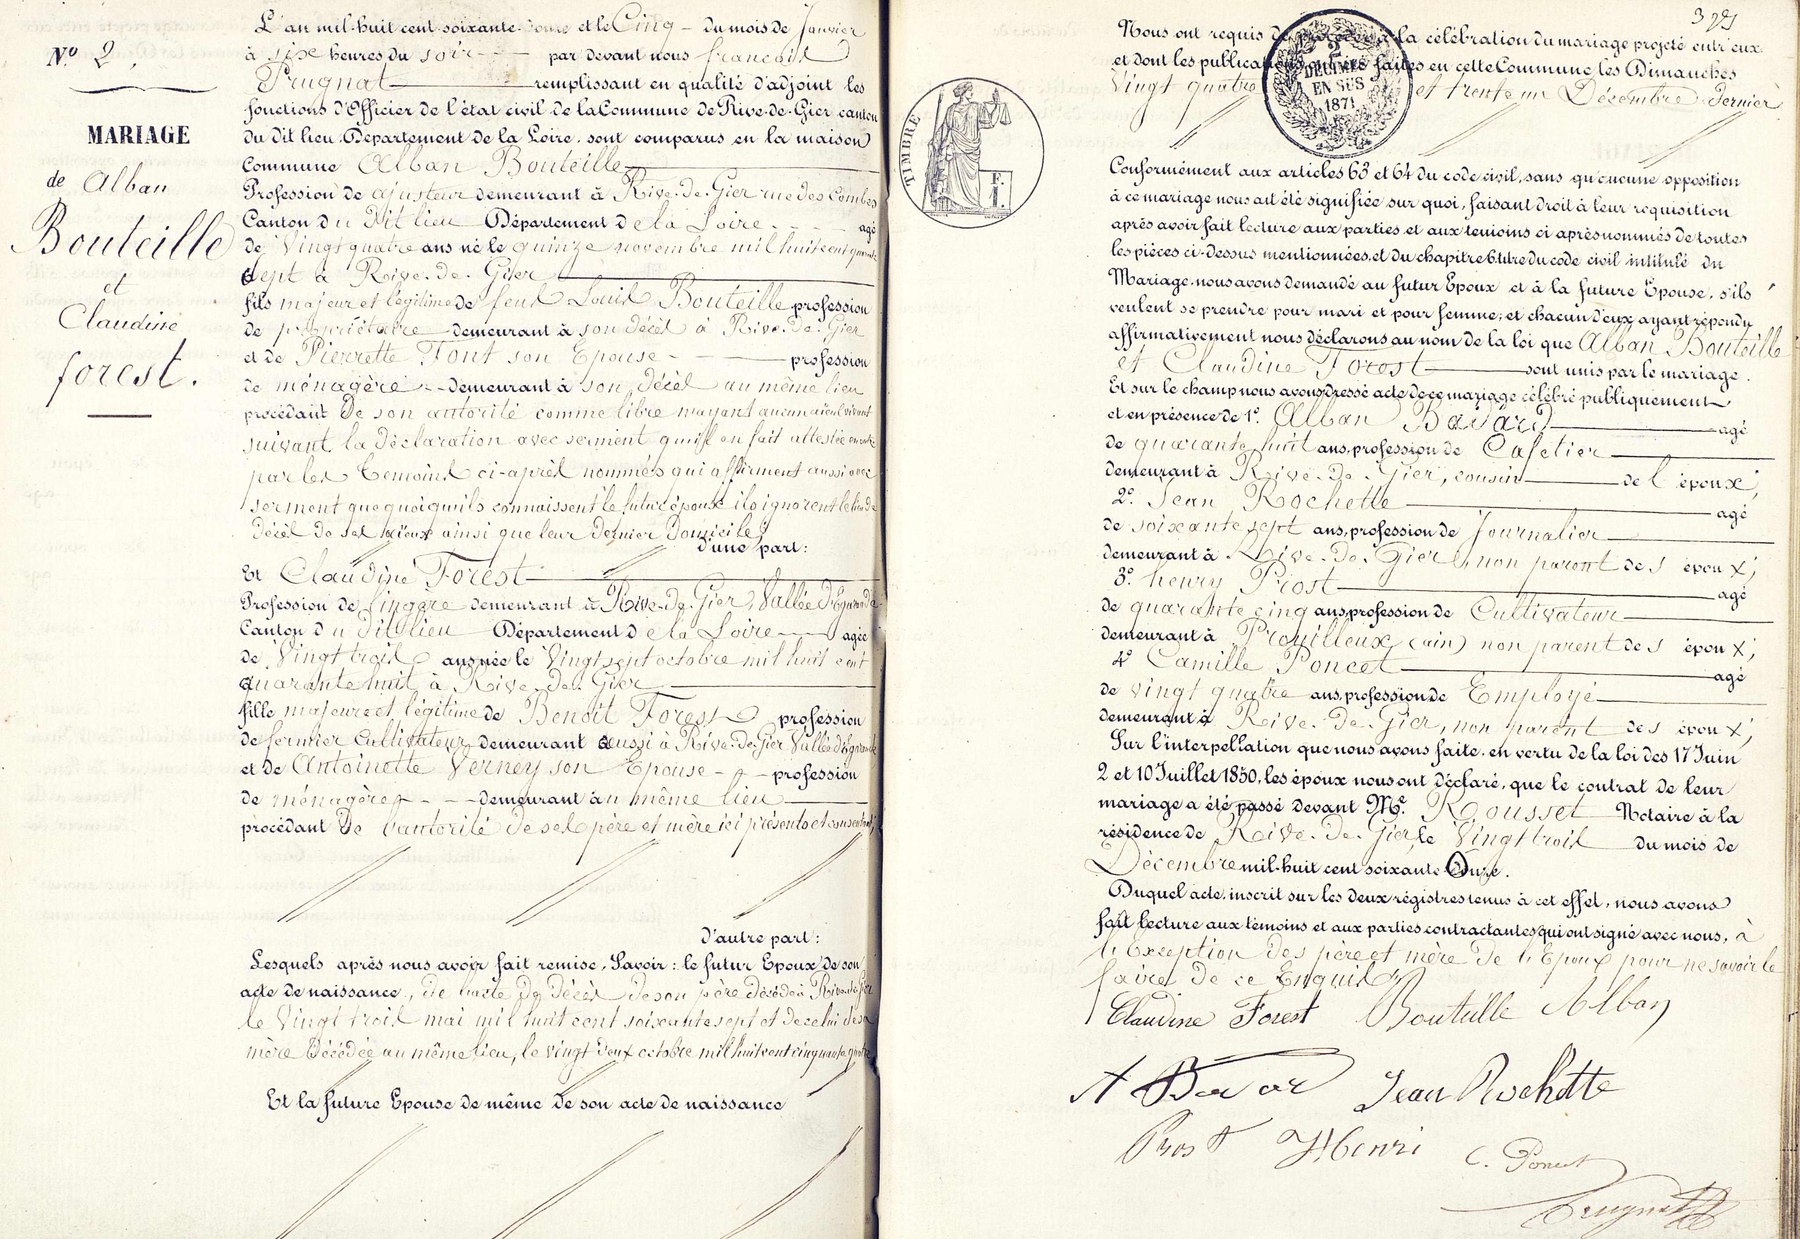 N.º 2.
MARIAGE
de Alban
Bouteille
et
Claudine
forest.
L'an mil-huit cent-soixante-douze et le Cinq - du mois de Janvier
à six heures du soir par devant nous francois
Prugnat remplissant en qualité d'adjoint les
fonctions d'Officier de l'état civil de la Commune de Rive-de-Gier canton
du dit lieu Département de la Loire. sont comparus en la maison
Commune Alban Bouteille
Profession de ajusteur demeurant à Rive-de-Gier rue des Combes
Canton du dit lieu Département de la Loire agé
de Vingt quatre ans né le quinze novembre mil huit cent quarante
sept à Rive-de-Gier
fils majeur et légitime de feus Louis Bouteille profession
de propriétaire demeurant à son décès à Rive-de-Gier
et de Pierrette Font son Epouse profession
de ménagère demeurant à son décès au même lieu
procédant De son autorité comme libre n'ayant aucun aieul vivant
suivant la déclaration avec serment qu'il en fait attestée
par les témoins ci-après nommés qui affirment aussi avec
serment que quoiqu'ils connaissent le futur époux ils ignorent le lieu du
décès de ses aïeux ainsi que leur dernier domicile
d'une part:
Et Claudine Forest
Profession de lingère demeurant à Rive-de-Gier, Vallée d'Egarande
Canton du dit lieu Département de la Loire agée
de Vingt trois ans née le Vingt sept octobre mil huit cent
quarante huit à Rive-de-Gier
fille majeure et légitime de Benoît Forest profession
de fermier Cultivateur demeurant aussi à Rive-de-Gier Vallée d'Egarande
et de Antoinette Verney son Epouse profession
de ménagère demeurant au même lieu
procédant De l'autorité de ses père et mère ici présents et consentants
d'autre part:
Lesquels après nous avoir fait remise, Savoir: le futur Epoux de son
acte de naissance, de l'acte de décès de son père décédé à Rive-de-Gier
le Vingt trois mai mil huit cent soixante sept et de celui de sa
mère décédée au même lieu, le vingt deux octobre mil huit cent cinquante quatre
Et la future Epouse de même de son acte de naissance
399
Nous ont requis de procéder à la célébration du mariage projeté entr'eux
et dont les publications ont été faites en cette Commune les Dimanches
Vingt quatre et trente un Décembre dernier
2
DÉCIMES
EN SUS
1871
TIMBRE
Conformément aux articles 63 et 64 du code civil, sans qu'aucune opposition
à ce mariage nous ait été signifiée sur quoi, faisant droit à leur requisition
après avoir fait lecture aux parties et aux temoins ci après nommés de toutes
les pièces ci-dessus mentionnées, et du chapitre 6 titre du code civil intitulé du
Mariage, nous avons demandé au futur Epoux et à la future Epouse, s'ils
veulent se prendre pour mari et pour femme; et chacun d'eux ayant répondu
affirmativement nous déclarons au nom de la loi que Alban Bouteille
et Claudine Forest sont unis par le mariage.
Et sur le champ nous avons dressé acte de ce mariage célébré publiquement
et en présence de 1º. Alban Bavard agé
de quarante huit ans, profession de Cafetier
demeurant à Rive-de-Gier, cousin de l'époux;
2º. Jean Rochette agé
de soixante sept ans, profession de Journalier
demeurant à Rive-de-Gier, non parent des époux;
3º. henry Prost agé
de quarante cinq ans, profession de Cultivateur
demeurant à Prouilleux (ain) non parent des époux;
4º Camille Poncet agé
de vingt quatre ans, profession de Employé
demeurant à Rive-de-Gier, non parent des époux;
Sur l'interpellation que nous avons faite, en vertu de la loi des 17 Juin
2 et 10 Juillet 1850, les époux nous ont déclaré, que le contrat de leur
mariage a été passé devant Me. Rousset Notaire à la
résidence de Rive-de-Gier, le Vingt trois du mois de
Décembre mil-huit cent soixante-Onze.
Duquel acte, inscrit sur les deux régistres tenus à cet effet, nous avons
fait lecture aux témoins et aux parties contractantes qui ont signé avec nous, à
l'Exception des père et mère de l'Epoux pour ne savoir le
faire de ce Enquis
Claudine Forest Bouteille Alban
A Bavar Jean Rochette
Prost Henri C. Poncet
Prugnat